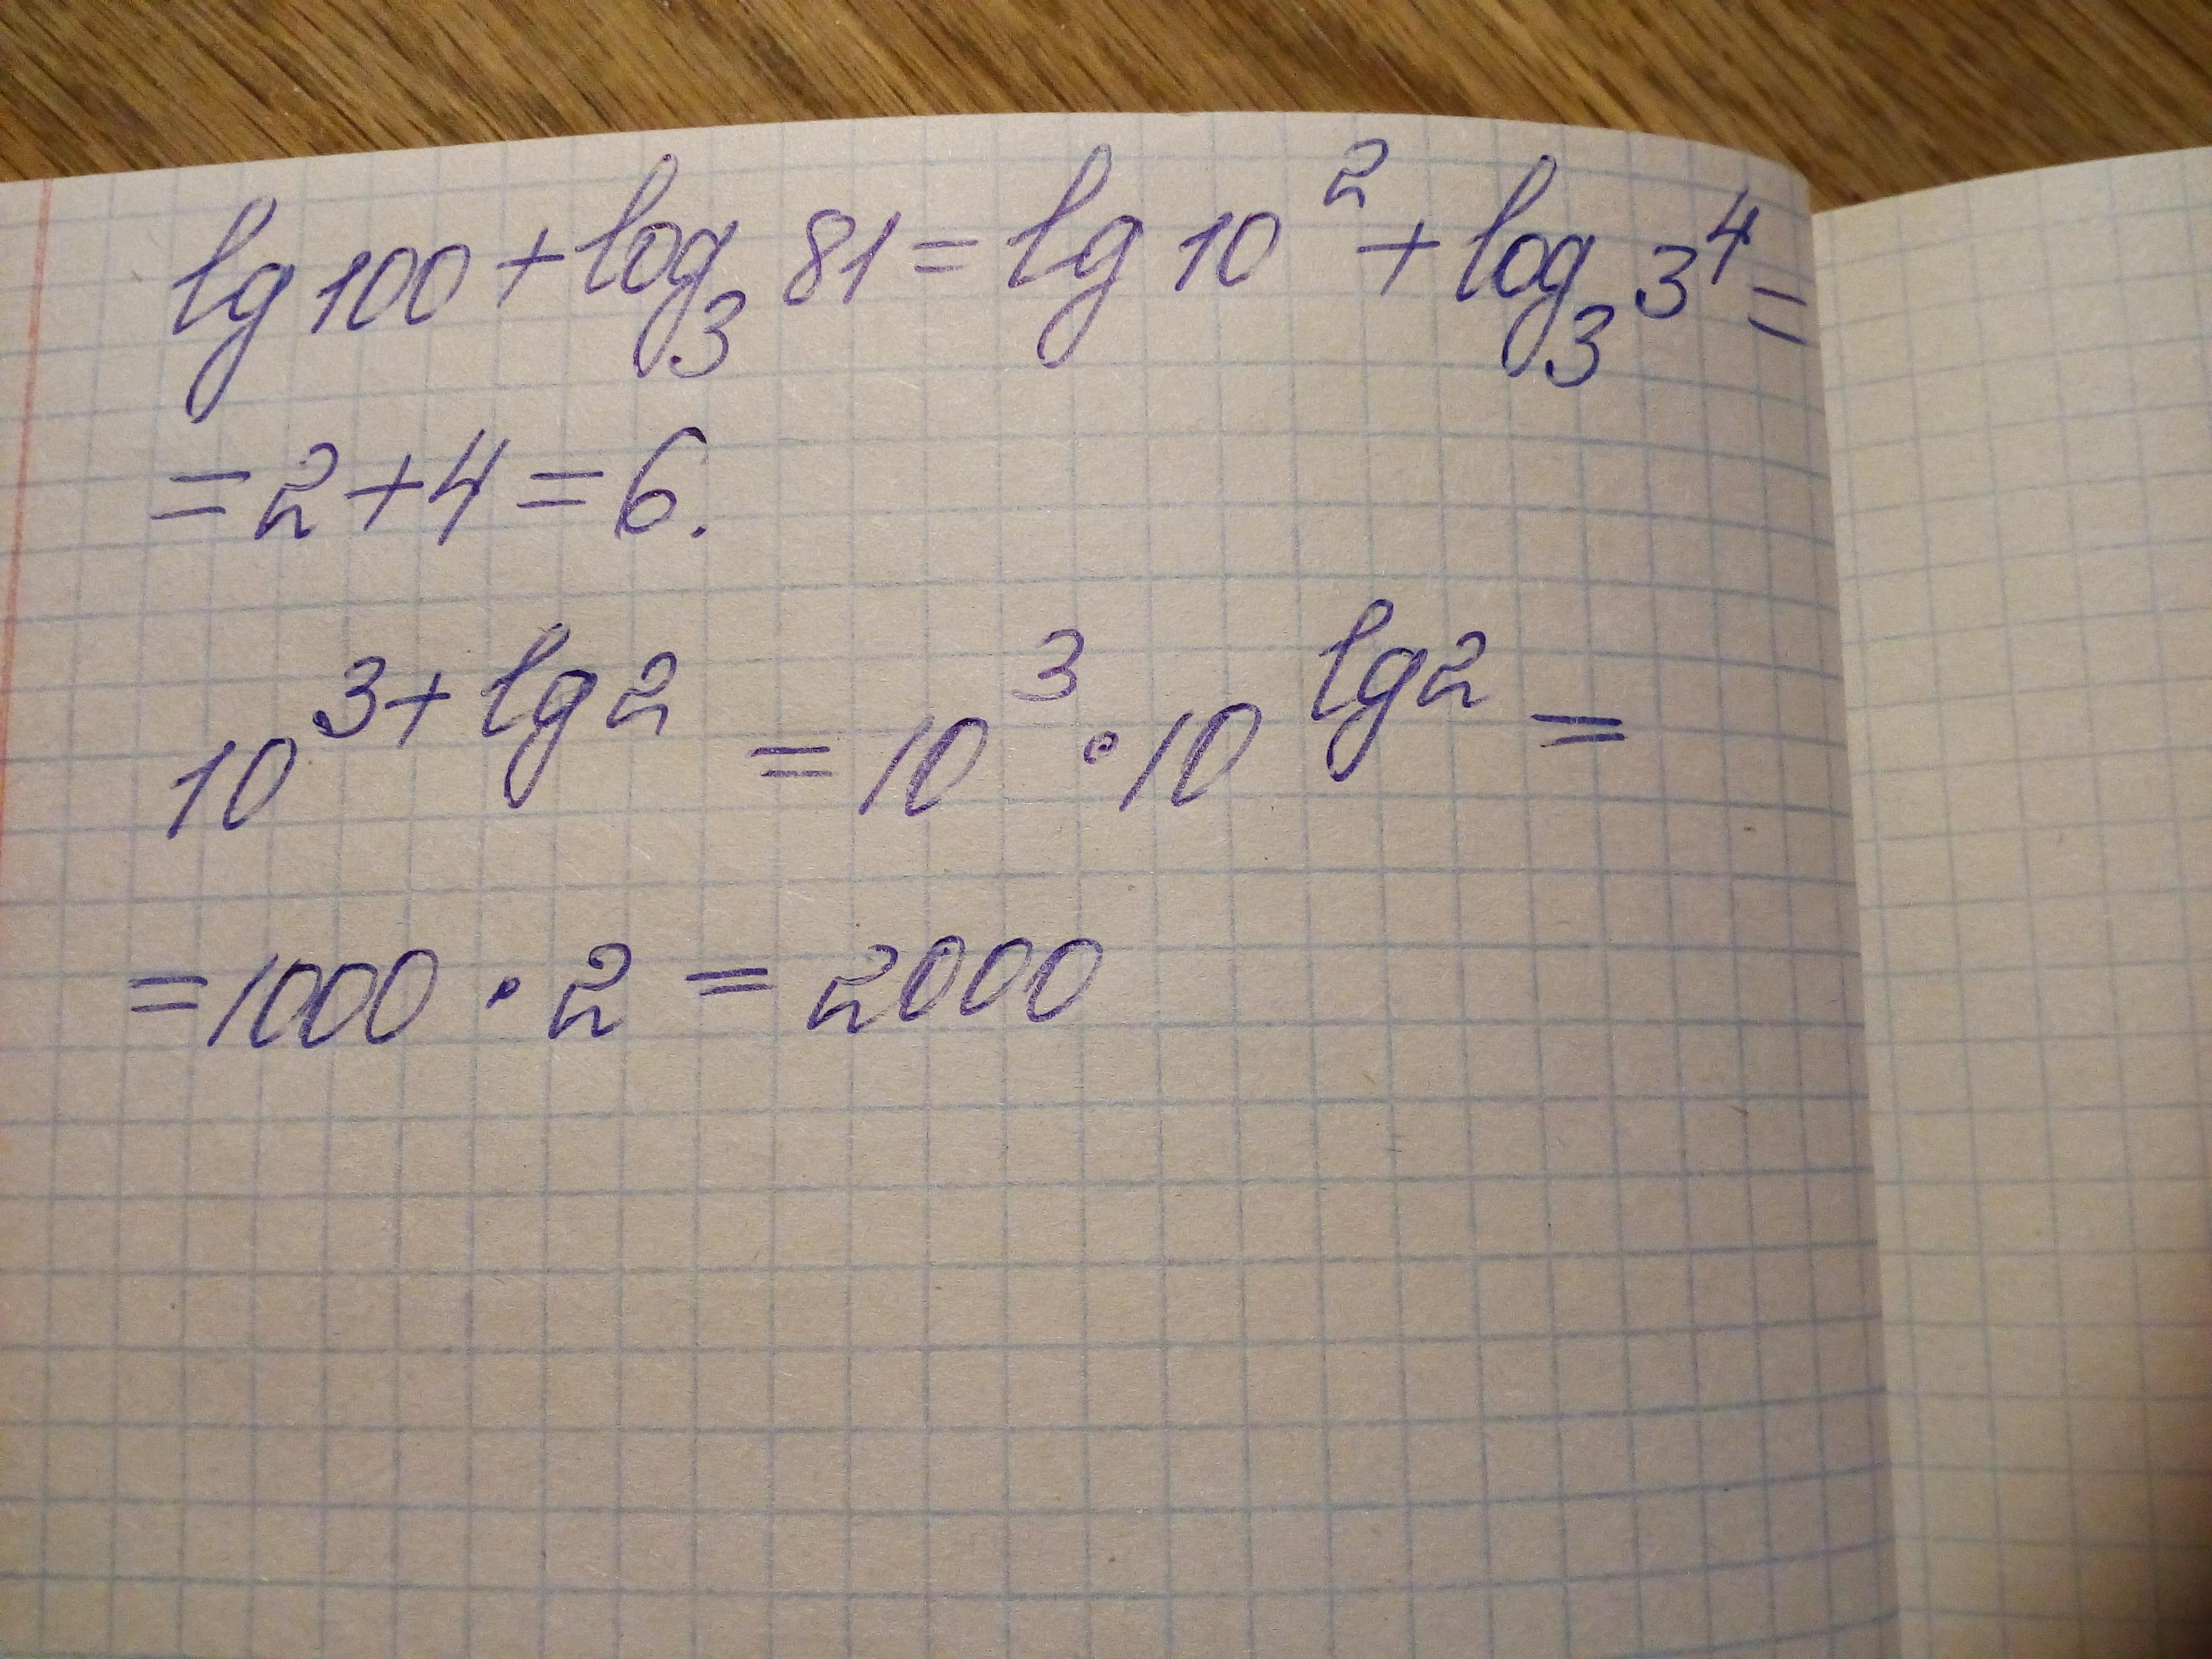 lg 100 + log₃ 81 = lg 10² + log₃ 3⁴ =
= 2 + 4 = 6.
10^(3 + lg 2) = 10³ · 10^(lg 2) =
= 1000 · 2 = 2000